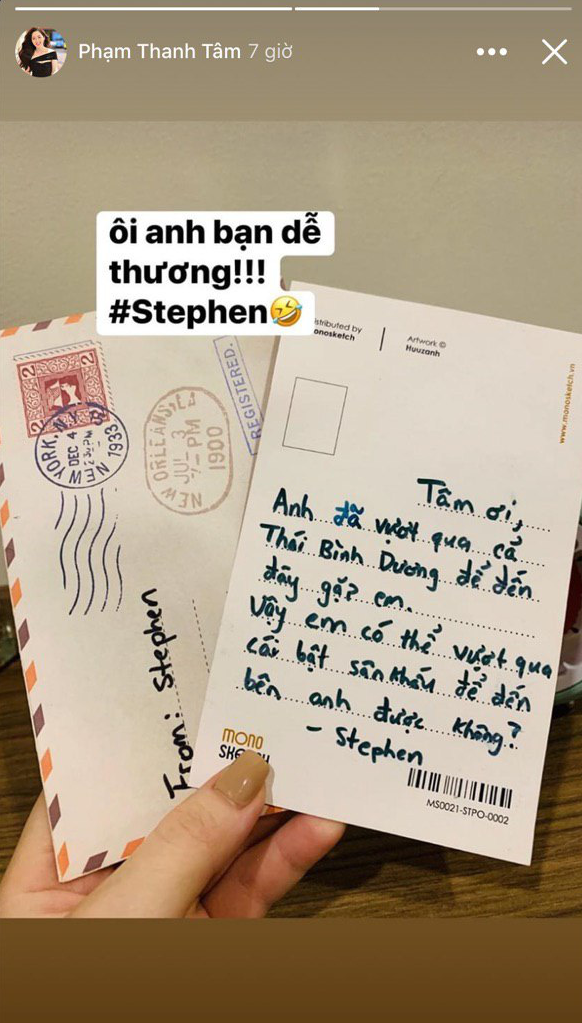 Phạm Thanh Tâm 7 giờ
ôi anh bạn dễ
thương!!!
#Stephen🤣
stributed by
onosketch
Artwork ©
Huuzanh
www.monosketch.vn
2 2
YORK, N.Y.
DEC 4
1933
NEW ORLEANS, LA
JUL 3
-PM
1900
REGISTERED.
From: Stephen
Tâm ơi,
Anh đã vượt qua cả
Thái Bình Dương để đến
đây gặp em.
Vậy em có thể vượt qua
cái bật sân khấu để đến
bên anh được không?
- Stephen
MONO
MS0021-STPO-0002